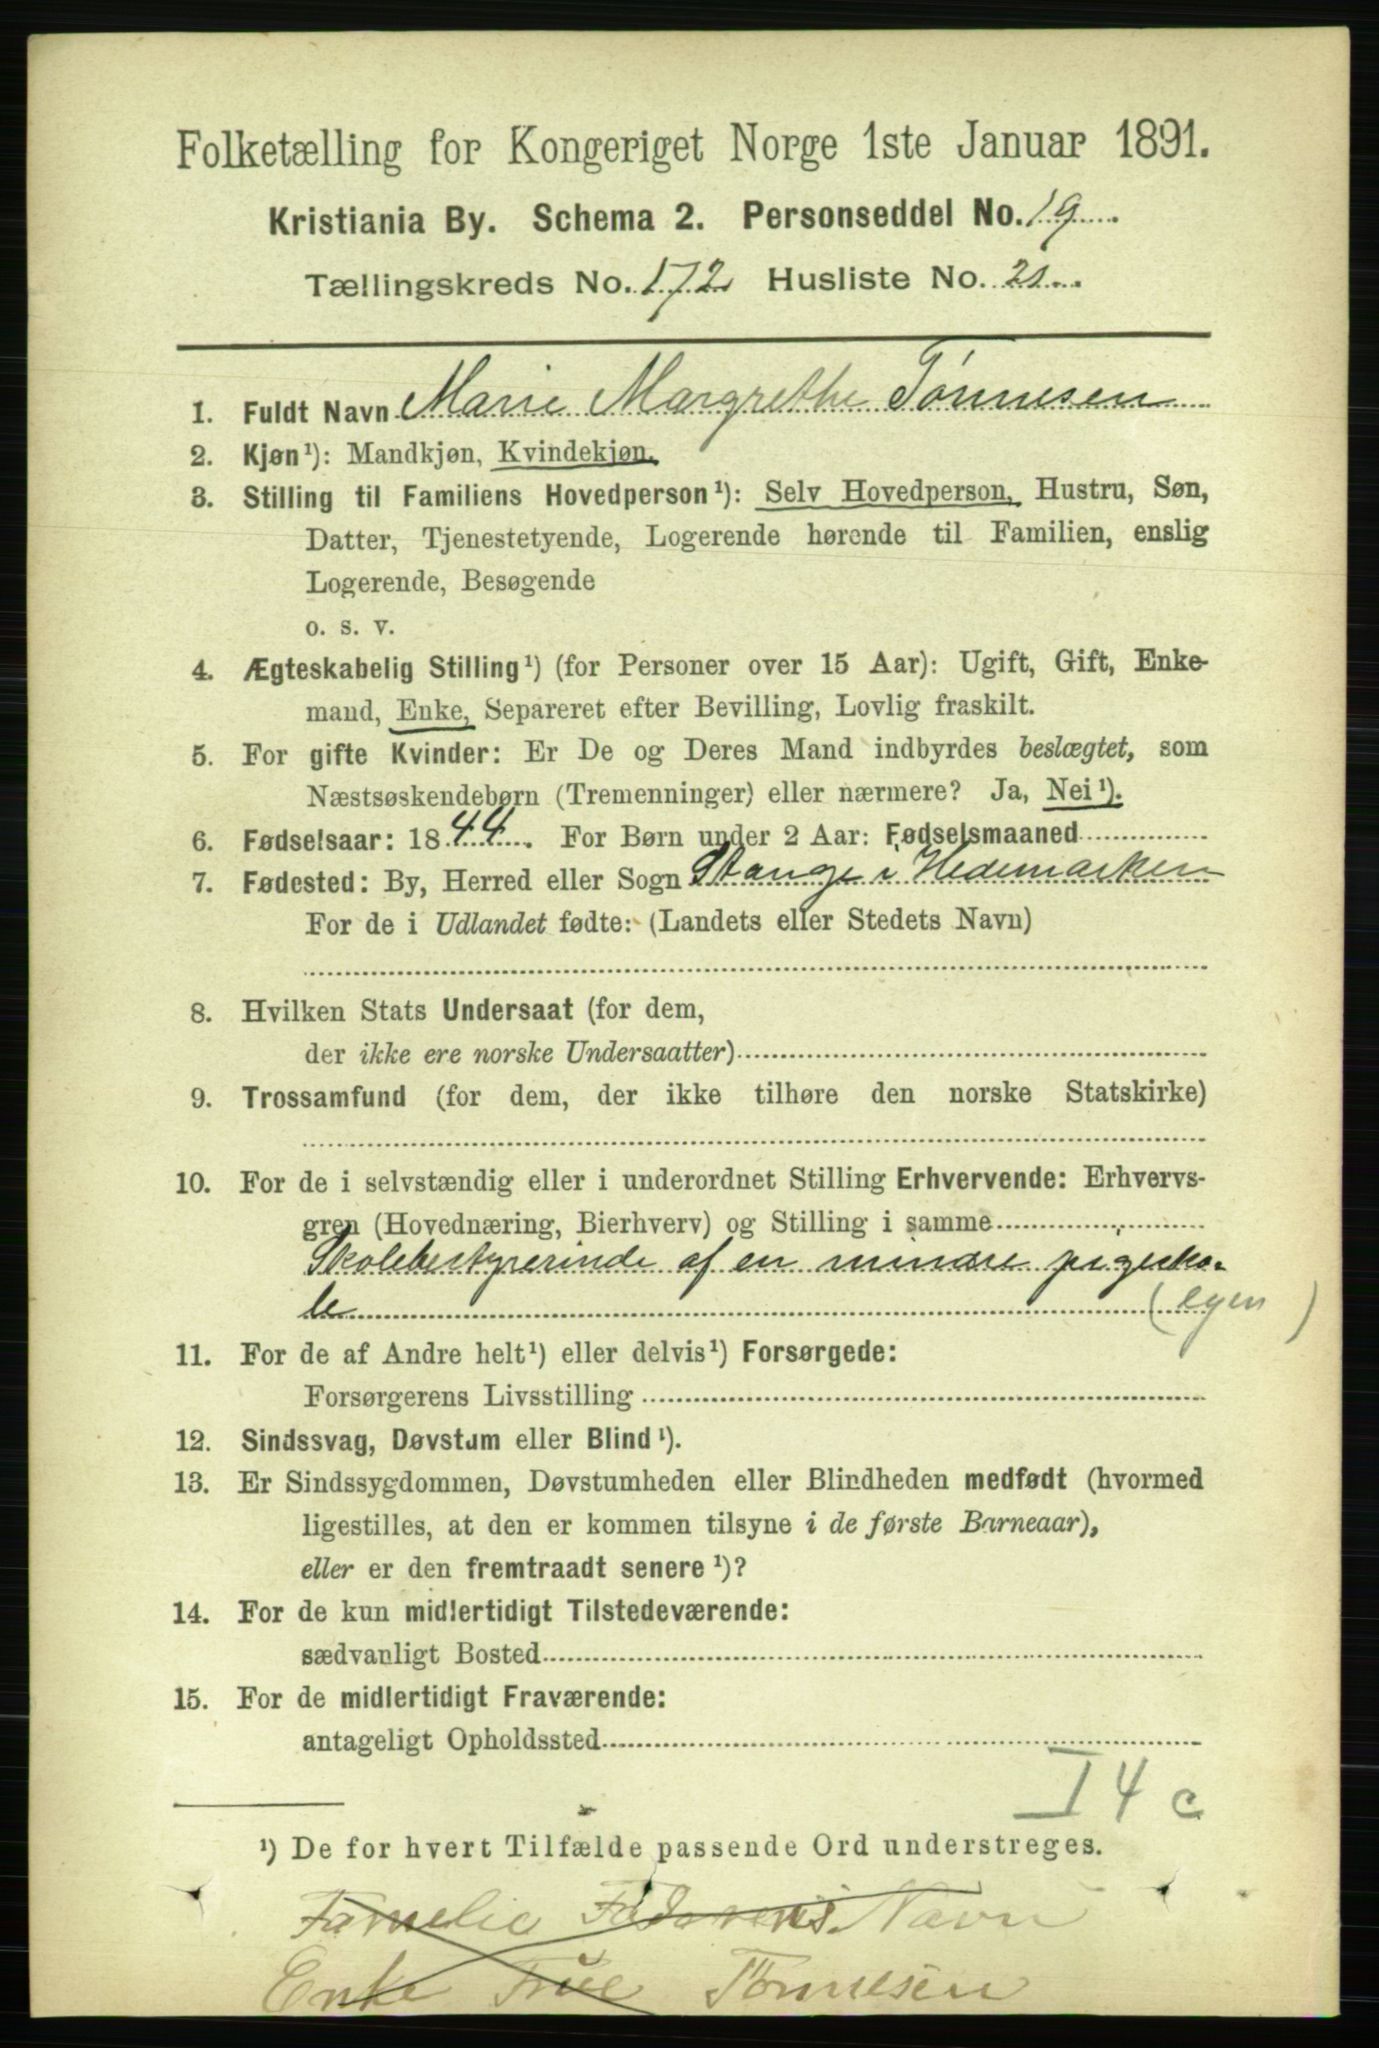 Folketælling for Kongeriget Norge 1ste Januar 1891.
Kristiania By. Schema 2. Personseddel No. 19
Tællingskreds No. 172 Husliste No. 21
1. Fuldt Navn Marie Margrethe Tönnesen
2. Kjøn¹): Mandkjøn, Kvindekjøn.
3. Stilling til Familiens Hovedperson¹): Selv Hovedperson, Hustru, Søn,
Datter, Tjenestetyende, Logerende hørende til Familien, enslig
Logerende, Besøgende
o. s. v.
4. Ægteskabelig Stilling¹) (for Personer over 15 Aar): Ugift, Gift, Enke-
mand, Enke, Separeret efter Bevilling, Lovlig fraskilt.
5. For gifte Kvinder: Er De og Deres Mand indbyrdes beslægtet, som
Næstsøskendebørn (Tremenninger) eller nærmere? Ja, Nei¹).
6. Fødselsaar: 1844. For Børn under 2 Aar: Fødselsmaaned
7. Fødested: By, Herred eller Sogn Stange i Hedemarken
For de i Udlandet fødte: (Landets eller Stedets Navn)
8. Hvilken Stats Undersaat (for dem,
der ikke ere norske Undersaatter)
9. Trossamfund (for dem, der ikke tilhøre den norske Statskirke)
10. For de i selvstændig eller i underordnet Stilling Erhvervende: Erhvervs-
gren (Hovednæring, Bierhverv) og Stilling i samme
Skolebestyrerinde af en mindre pigesko-
le (egen)
11. For de af Andre helt¹) eller delvis¹) Forsørgede:
Forsørgerens Livsstilling
12. Sindssvag, Døvstum eller Blind¹).
13. Er Sindssygdommen, Døvstumheden eller Blindheden medfødt (hvormed
ligestilles, at den er kommen tilsyne i de første Barneaar),
eller er den fremtraadt senere¹)?
14. For de kun midlertidigt Tilstedeværende:
sædvanligt Bosted
15. For de midlertidigt Fraværende:
antageligt Opholdssted
I 4 c
¹) De for hvert Tilfælde passende Ord understreges.
Famelie Faderens Navn
Enke Frue Tönnesen